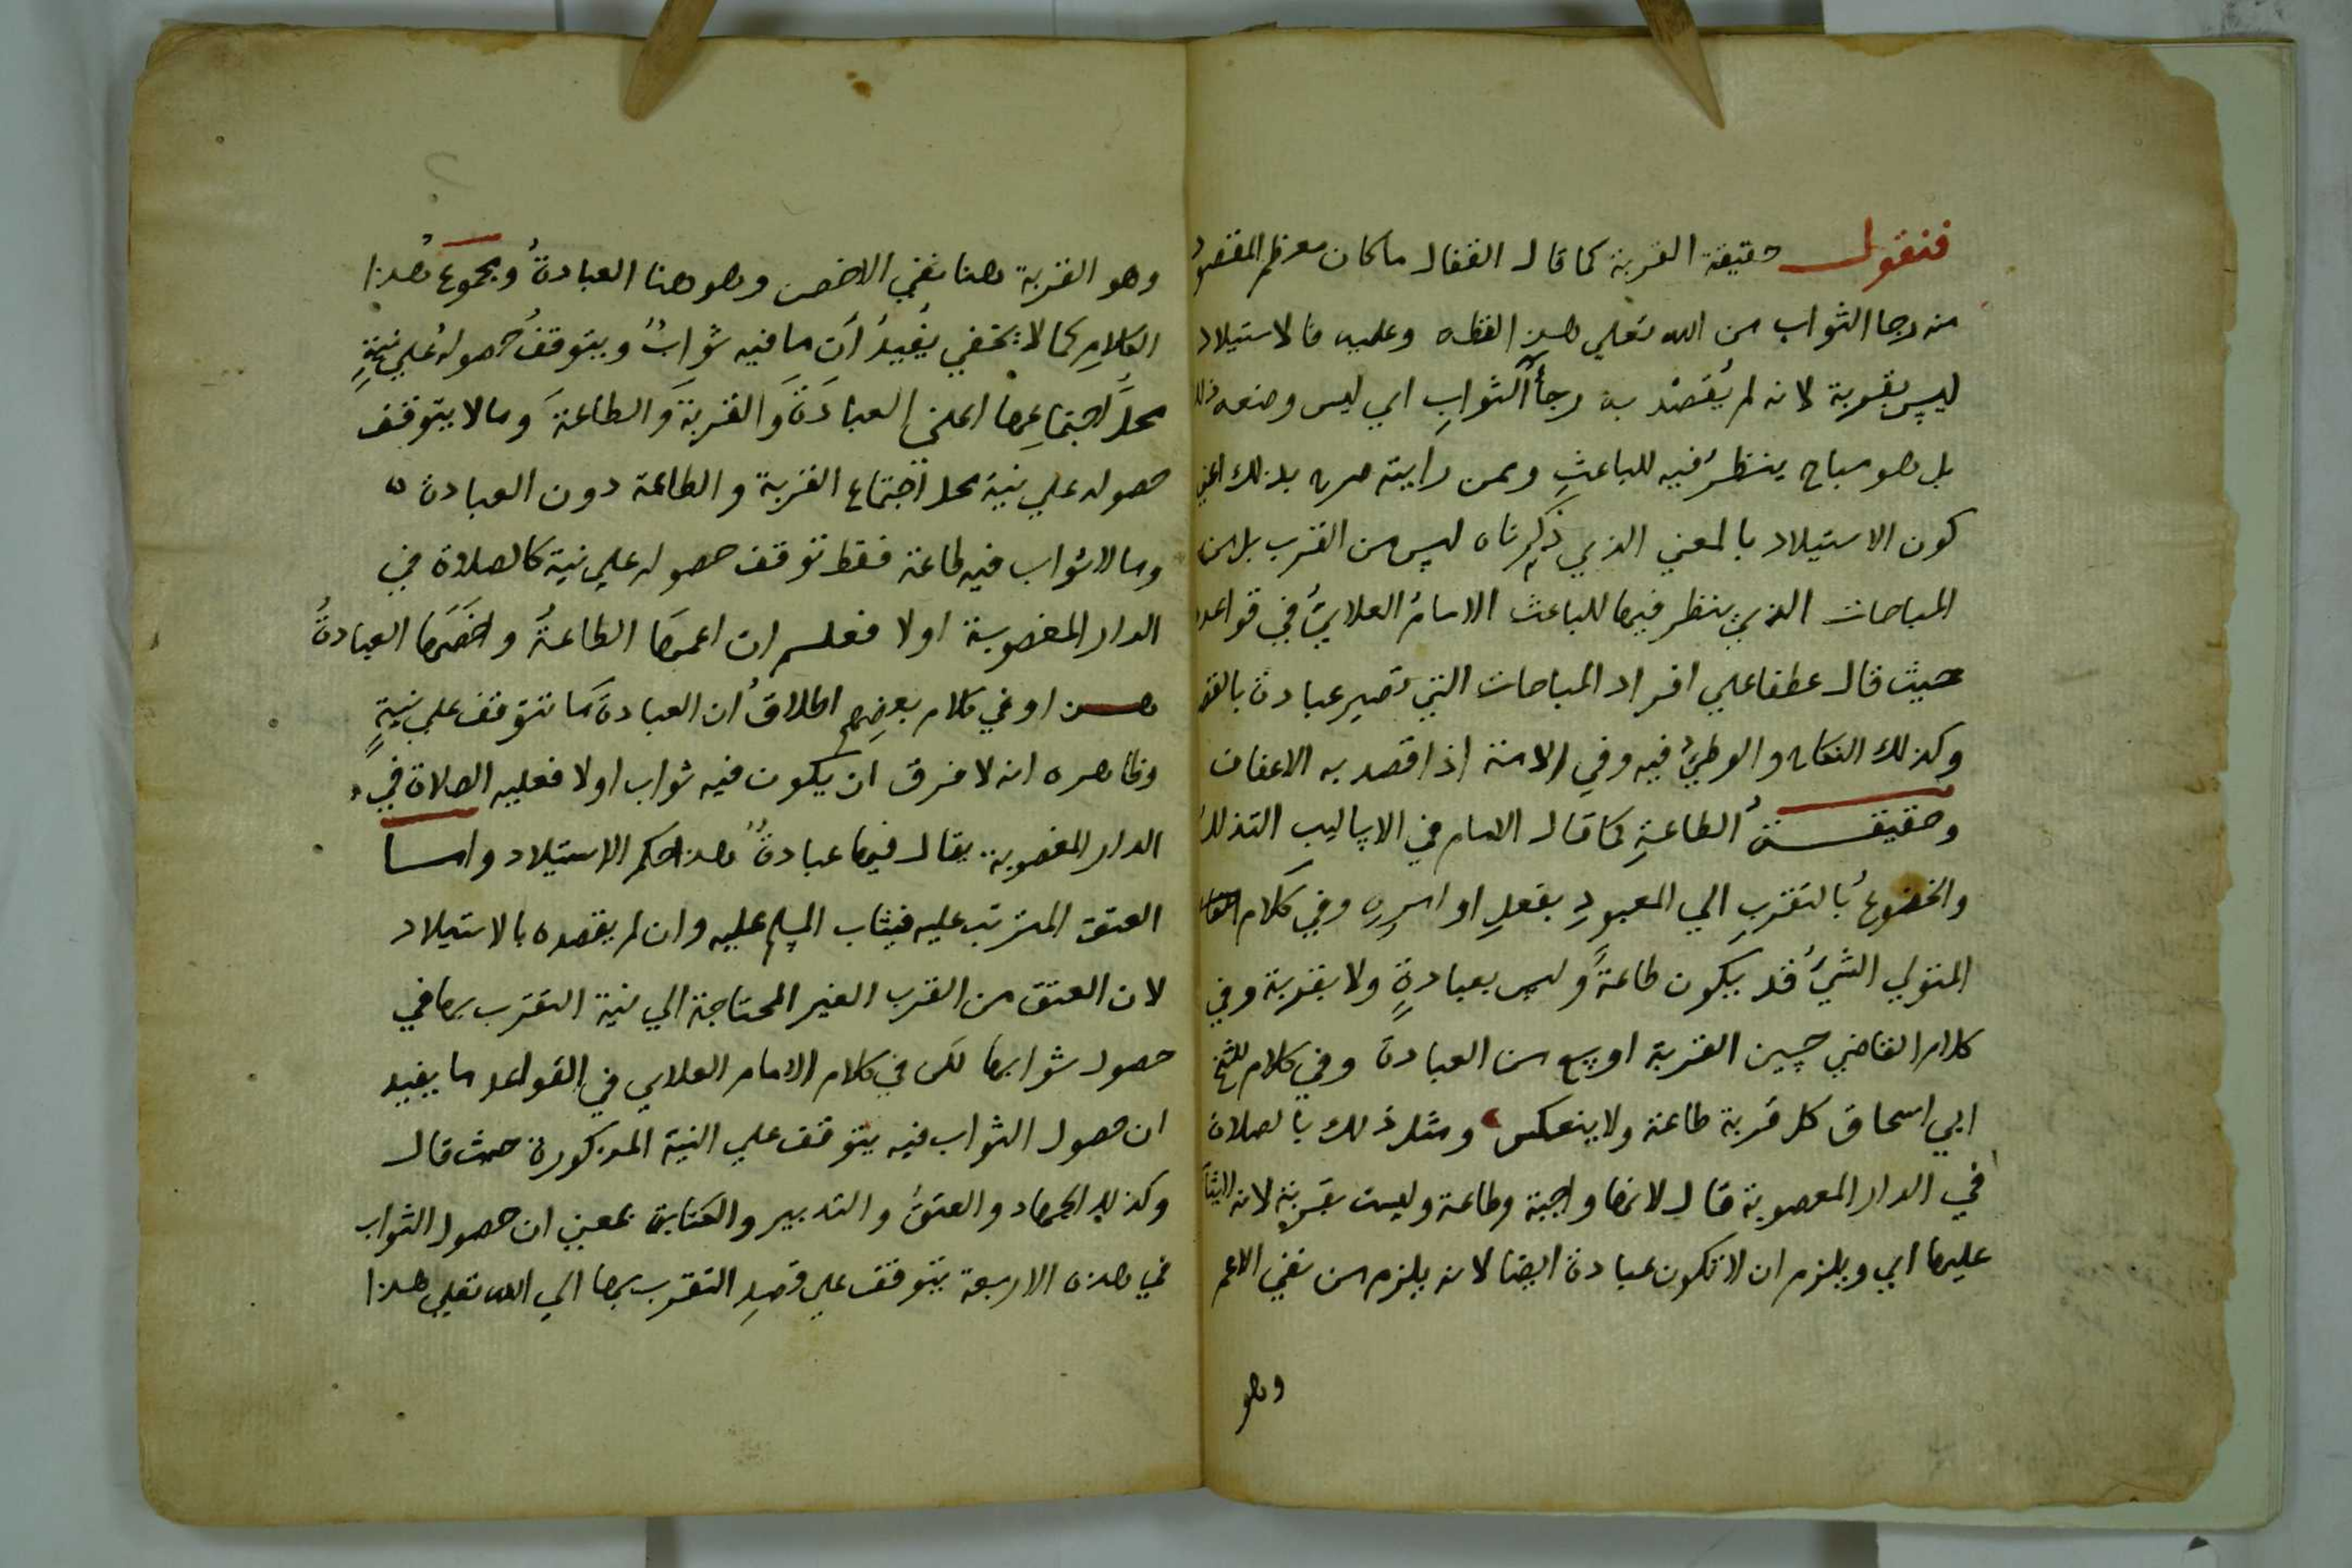 فنقول حقيقة القربة كما قال القفال ما كان معظم المقصود
منه رجا الثواب من الله تعلي هذه لفظه وعليه فالاستيلاد
ليس بقربة لانه لم يُقصَد به رجآ الثوابِ اي ليس وضعه ذلك
بل هو مباح ينظر فيه للباعثِ وممن رايته صرح بذلك اعني
كون الاستيلاد بالمعني الذي ذكرناه ليس من القرب بل من
المباحات الذي ينظر فيها للباعث الامام العلايُّ في قواعده
حيث قال عطفا علي افراد المباحات التي تصير عبادة بالقصد
وكذلك النكاح والوطيُ فيه وفي الامة اذا قصد به الاعفاف
وحقيقـة الطاعةِ كما قال الامام في الاساليب التذلل
والخضوعُ بالتقربِ الي المعبودِ بفعلِ اوامره وفي كلام
المتولي الشيُ قد يكون طاعةً وليس بعبادةٍ ولا بقربة وفي
كلام القاضي حسين القربة اوسع من العبادة وفي كلام للشيخ
ابي اسحاق كل قربة طاعة ولا ينعكس ومثل ذلك بالصلاة
في الدار المغصوبة قال لانها واجبة وطاعة وليست بقربة لانه لا يثاب
عليها اي ويلزم ان لا تكون عبادة ايضا لانه يلزم من نفي الاعم
وهو
وهو القربة هنا نفي الاخص وهو هنا العبادةُ ومجموع هذا
الكلامِ كما لا يخفي يُفيدُ أن ما فيه ثوابٌ ويتوقفُ حصوله علي نيةٍ
محلُّ اجتماعِها اعني العبادَةَ والقربةَ والطاعةَ وما لا يتوقف
حصوله علي نية محل اجتماع القربة والطاعة دون العبادة ه
وما لا ثواب فيه طاعة فقط توقف حصوله علي نية كالصلاة في
الدار المغصوبة اولا فعلم ان اعمها الطاعةُ واخصَها العبادةُ
هــذا وفي كلام بعضِهم اطلاقُ ان العبادة ما تتوقف علي نيةٍ
وظاهره انه لا فرق ان يكون فيه ثواب اولا فعليه الصلاة في
الدار المغصوبة يقال فيها عبادةٌ هذا حكم الاستيلاد وامـا
العتق المترتب عليه فيثاب المسلم عليه وان لم يقصده بالاستيلاد
لان العتق من القرب الغير المحتاجة الي نية التقرب بها في
حصول ثوابها لكن في كلام الامام العلاي في القواعد ما يفيد
ان حصول الثواب فيه يتوقف علي النية المذكورة حيث قال
وكذلك الجهاد والعتق والتدبير والكتابة بمعني ان حصول الثواب
في هذه الاربعة يتوقف علي قصدِ التقرب بها الي الله تعلي هذا